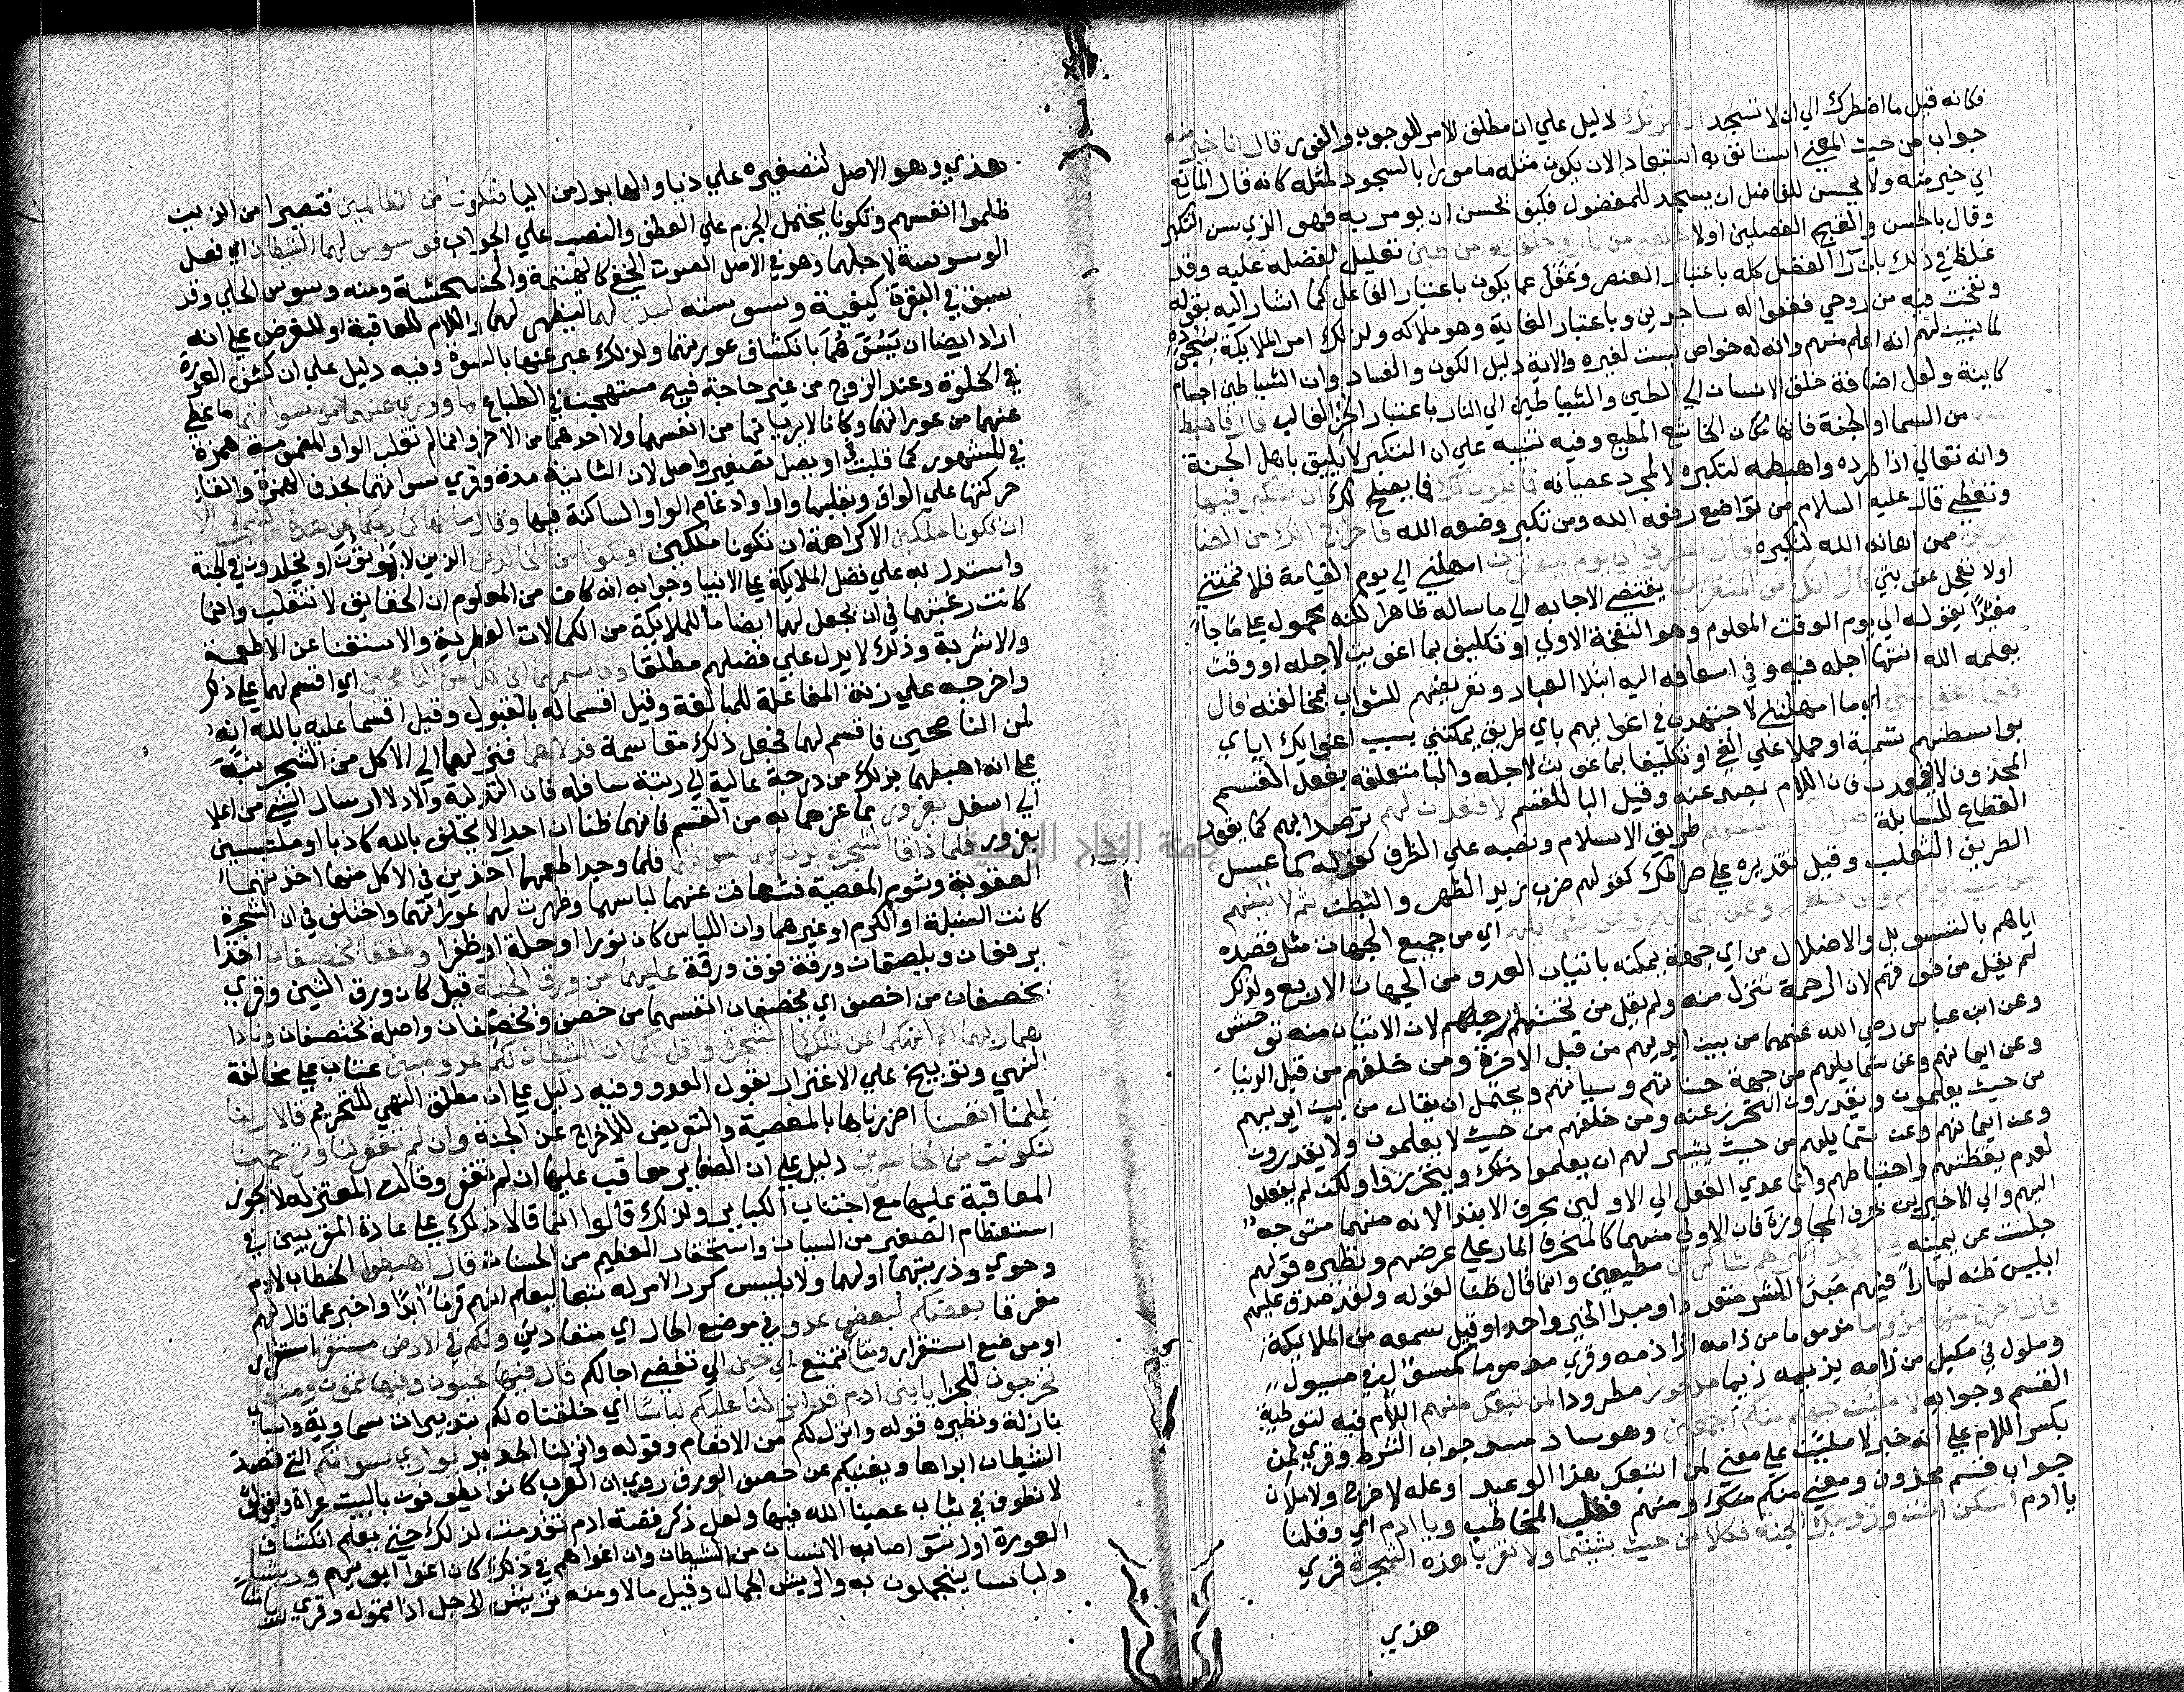 فكانه قيل ما اضطرك الي ان لا تسجد اذ امرتك دليل علي ان مطلق الامر للوجوب والفور قال انا خير منه
جواب من حيث المعني استانف به استبعادا لان يكون مثله مامورا بالسجود لمثله كانه قال المانع
اني خير منه ولا يحسن للفاضل ان يسجد للمفضول فكيف يحسن ان يومر به فهو الذي سن التكبر
وقال بالحسن والقبح العقليين اولا خلقتني من نار وخلقته من طين تعليل لفضله عليه وقد
غلط في ذلك بان راا الفضل كله باعتبار العنصر وغفل عما يكون باعتبار الفاعل كما اشار اليه بقوله
ونفخت فيه من روحي فقعوا له ساجدين وباعتبار الغاية وهو ملاكه ولذلك امر الملايكة بسجوده
لما تبين لهم انه اعلم منهم وانه له خواص ليست لغيره والاية دليل الكون والفساد وان الشياطين اجسام
كاينة ولعل اضافة خلق الانسان الي الطين والشياطين الي النار باعتبار الجزء الغالب قال فاهبط
منها من السما او الجنة فانها مكان الخاشع المطيع وفيه تنبيه علي ان التكبر لا يليق باهل الجنة
وانه تعالي اذا طرده واهبطه لتكبره لا لمجرد عصيانه فما يكون لك فما يصلح لك ان تتكبر فيها
وتعصي قال عليه السلام من تواضع رفعه الله ومن تكبر وضعه الله فاخرج انك من الصا
غرين ممن اهانه الله لتكبره قال انظرني الي يوم يبعثون امهلني الي يوم القيامة فلا تمتني
اولا تعجل عقوبتي قال انك من المنظرين يقتضي الاجابه الي ما ساله ظاهرا لكنه محمول علي ما جا
مقيدا بقوله الي يوم الوقت المعلوم وهو النفخة الاولي او وقت
يعلمه الله انتها اجله فيه وفي اسعافه اليه ابتلا العباد وتعريضهم للثواب بمخالفته قال
فبما اغويتني اي بما امهلتني لاجتهدن في اغوايهم باي طريق يمكنني بسبب اغوايك اياي
بواسطتهم تسمية او حملا علي الغي او تكليفا بما غويت لاجله والبا متعلقه بفعل القسم
المحذوف لا باقعدن فان اللام يصد عنه وقيل البا للقسم لاقعدن لهم ترصدا بهم كما يقعد
القطاع للسابلة صراطك المستقيم طريق الاسلام ونصبه علي الظرف كقوله كما عسل
الطريق الثعلب وقيل تقديره علي صراطك كقولهم ضرب زيد الظهر والبطن ثم لاتينهم
من بين ايديهم ومن خلفهم وعن ايمانهم وعن شمايلهم اي من جميع الجهات مثل قصده
اياهم بالتسويل والاضلال من اي جهة يمكنه باتيان العدو من الجهات الاربع ولذلك
لم يقل من فوقهم لان الرحمة تنزل منه ولم يقل من تحت ارجلهم لان الاتيان منه توحش
وعن ابن عباس رضي الله عنهما من بين ايديهم من قبل الاخرة ومن خلفهم من قبل الدنيا
وعن ايمانهم وعن شمايلهم من جهة حسناتهم وسياتهم ويحتمل ان يقال من بين ايديهم
من حيث يعلمون ويقدرون التحرز عنه ومن خلفهم من حيث لا يعلمون ولا يقدرون
وعن ايمانهم وعن شمايلهم من حيث يتيسر لهم ان يعلموا ذلك ويتحرزوا ولكن لم يفعلوا
لعدم يقظتهم واحتياطهم وانما عدي الفعل الي الاولين بحرف الابتدا لانه منهما متوجه
اليهم والي الاخيرين بحرف المجاوزة فان الاتي منهما كالمنحرف المار علي عرضهم ونظيره قولهم
جلست عن يمينه ولا تجد اكثرهم شاكرين مطيعين وانما قال ظنا لقوله ولقد صدق عليهم
ابليس ظنه لما راا فيهم مبدا الشر متعددا ومبدا الخير واحدا وقيل سمعه من الملايكة
قال اخرج منها مذؤما مذموما من ذامه اذا ذمه وقري مذوما كمسول في مسيول
ومكول في مكيل من ذامه يذيمه ذيما مدحورا مطرودا لمن تبعك منهم اللام فيه لتوطية
القسم وجوابه لاملئن جهنم منكم اجمعين وهو ساد مسد جواب الشرط وقري لمن
بكسر اللام علي انه خبر لاملئن علي معني لمن اتبعك هذا الوعيد او علة لاخرج ولاملان
جواب قسم محذوف ومعني منكم منك ومنهم فغلب المخاطب ويا ادم اي وقلنا
يا ادم اسكن انت وزوجك الجنة فكلا من حيث شئتما ولا تقربا هذه الشجرة قري
هذي
هذي وهو الاصل لتصغيره علي ذيا والها بدل من اليا فتكونا من الظالمين فتصيرا من الذين
ظلموا انفسهم وتكونا يحتمل الجزم علي العطف والنصب علي الجواب فوسوس لهما الشيطان اي فعل
الوسوسة لاجلهما وهو في الاصل الصوت الخفي كالهينمة والخشخشة ومنه وسوس الحلي وقد
سبق في البقرة كيفية وسوسته ليبدي لهما ليظهر لهما واللام للعاقبة او للغرض علي انه
اراد ايضا ان يسوءهما بانكشاف عورتهما ولذلك عبر عنها بالسوة وفيه دليل علي ان كشف العورة
في الخلوة وعند الزوج من غير حاجة قبيح مستهجن في الطباع ما ووري عنهما من سواتهما ما غطي
عنهما من عوراتهما وكانا لا يريانها من انفسهما ولا احدهما من الاخر وانما لم تقلب الواو المضمومة همزة
في المشهور كما قلبت في اويصل تصغير واصل لان الثانية مدة وقري سواتهما بحذف الهمزة والقاء
حركتها علي الواو وبقلبها واوا وادغام الواو الساكنة فيها وقال ما نهاكما ربكما عن هذه الشجرة الا
ان تكونا ملكين الا كراهة ان تكونا ملكين او تكونا من الخالدين الذين لا يموتون او يخلدون في الجنة
واستدل به علي فضل الملايكة علي الانبيا وجوابه انه كان من المعلوم ان الحقايق لا تنقلب وانما
كانت رغبتهما في ان يجعل لهما ايضا ما للملايكة من الكمالات الفطرية والاستغنا عن الاطعمة
والاشربة وذلك لا يدل علي فضلهم مطلقا وقاسمهما اني لكما لمن الناصحين اي اقسم لهما علي ذلك
واخرجه علي زنة المفاعلة للمبالغة وقيل اقسما له بالقبول وقيل اقسما عليه بالله انه
لمن الناصحين فاقسم لهما فجعل ذلك مقاسمة فدلاهما فنزلهما الي الاكل من الشجرة نبه
علي انه اهبطهما بذلك من درجة عالية الي رتبة سافلة فان التدلية والادلا ارسال الشي من اعلا
الي اسفل بغرور بما غرهما به من القسم فانهما ظنا ان احدا لا يحلف بالله كاذبا او ملتبسين
بغرور فلما ذاقا الشجرة بدت لهما سواتهما فلما وجدا طعمها آخذين في الاكل منها اخذتهما
العقوبة وشوم المعصية فتهافت عنهما لباسهما وظهرت لهما عوراتهما واختلف في ان الشجرة
كانت السنبلة او الكرم او غيرهما وان اللباس كان نورا او حلة او ظفرا وطفقا يخصفان اخذا
يرقعان ويلصقان ورقة فوق ورقة عليهما من ورق الجنة قيل كان ورق التين وقري
يخصفان من اخصف اي يخصفان انفسهما من خصف ويخصفان واصله يختصفان وناداهما
ربهما الم انهكما عن تلكما الشجرة واقل لكما ان الشيطان لكما عدو مبين عتاب علي مخالفة
النهي وتوبيخ علي الاغترار بقول العدو وفيه دليل علي ان مطلق النهي للتحريم قالا ربنا
ظلمنا انفسنا اضررناها بالمعصية والتعريض للاخراج عن الجنة وان لم تغفر لنا وترحمنا
لنكونن من الخاسرين دليل علي ان الصغاير معاقب عليها ان لم تغفر وقالت المعتزلة لا تجوز
المعاقبة عليها مع اجتناب الكباير ولذلك قالوا انما قالا ذلك علي عادة المقربين في
استعظام الصغير من السيات واستحقار العظيم من الحسنات قال اهبطوا الخطاب لادم
وحوي وذريتهما او لهما ولابليس كرر الامر له تبعا ليعلم انهم قرنا ابدا واخبر عما قال لهم
مفرقا بعضكم لبعض عدو في موضع الحال اي متعادين ولكم في الارض مستقر استقرار
او موضع استقرار ومتاع تمتع الي حين الي تقضي اجالكم قال فيها تحيون وفيها تموتون ومنها
تخرجون للجزا يا بني ادم قد انزلنا عليكم لباسا اي خلقناه لكم بتدبيرات سماوية واسباب
نازلة ونظيره قوله وانزل لكم من الانعام وقوله وانزلنا الحديد يواري سواتكم التي قصد
الشيطان ابداها ويغنيكم عن خصف الورق روي ان العرب كانوا يطوفون بالبيت عراة ويقولون
لا نطوف في ثياب عصينا الله فيها ولعل ذكر قصة ادم تقدمت لذلك حتي يعلم انكشاف
العورة اول سو اصاب الانسان من الشيطان وان اغواهم في ذلك كما اغوا ابويهم وريشا
ولباسا يتجملون به والريش الجمال وقيل مالا ومنه تريش الرجل اذا تمول وقري رياشا